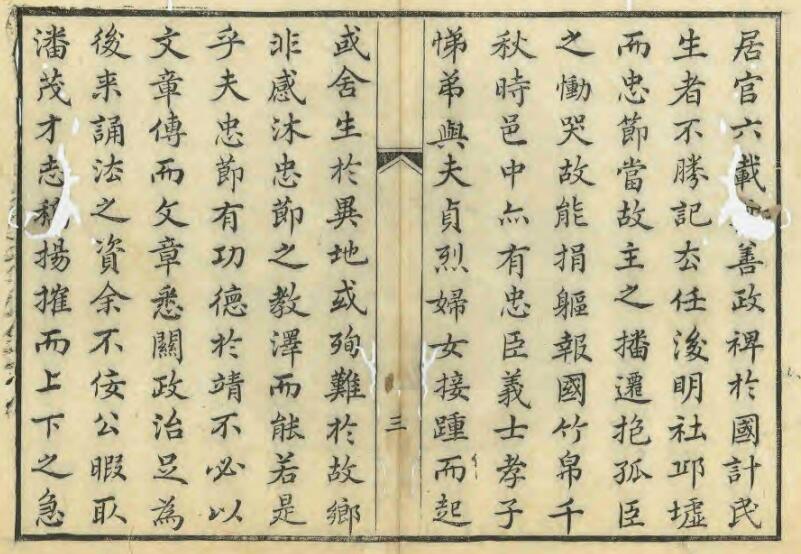 居官六載善政裨於國計民
生者不勝記厺任後明社邱墟
而忠節當故主之播遷抱孤臣
之慟哭故能捐軀報國竹帛千
秋時邑中亦有忠臣義士孝子
悌弟與夫貞烈婦女接踵而起
三
或舍生於異地或殉難於故鄉
非感沐忠節之教澤而能若是
乎夫忠節有功德於靖不必以
文章傳而文章悉關政治足為
後来誦法之資余不佞公暇取
潘茂才志稿揚搉而上下之急